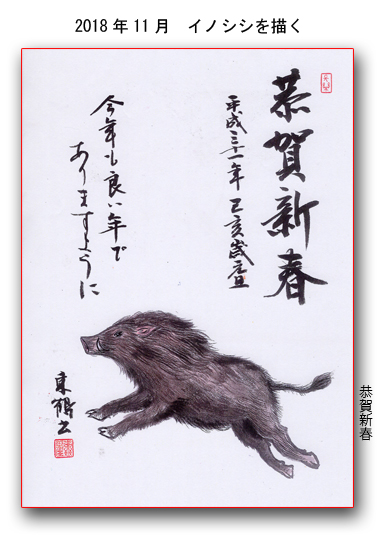 2018年11月　イノシシを描く
恭賀新春
平成三十一年 己亥歳旦
今年も良い年で
ありますように
東鶴
恭賀新春